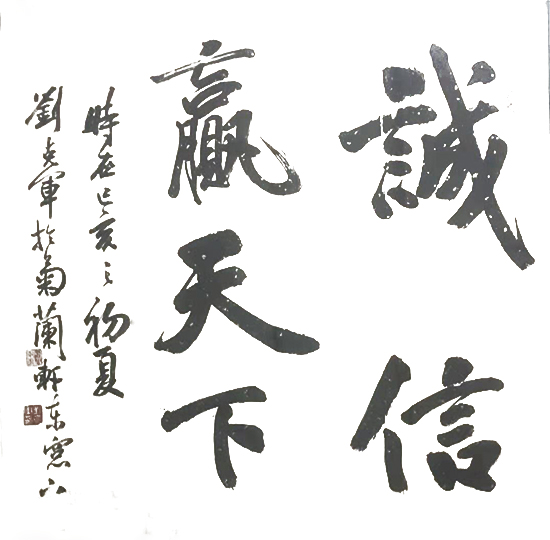 誠信
贏天下
時在己亥之初夏
劉克軍於菊蘭軒東窓下